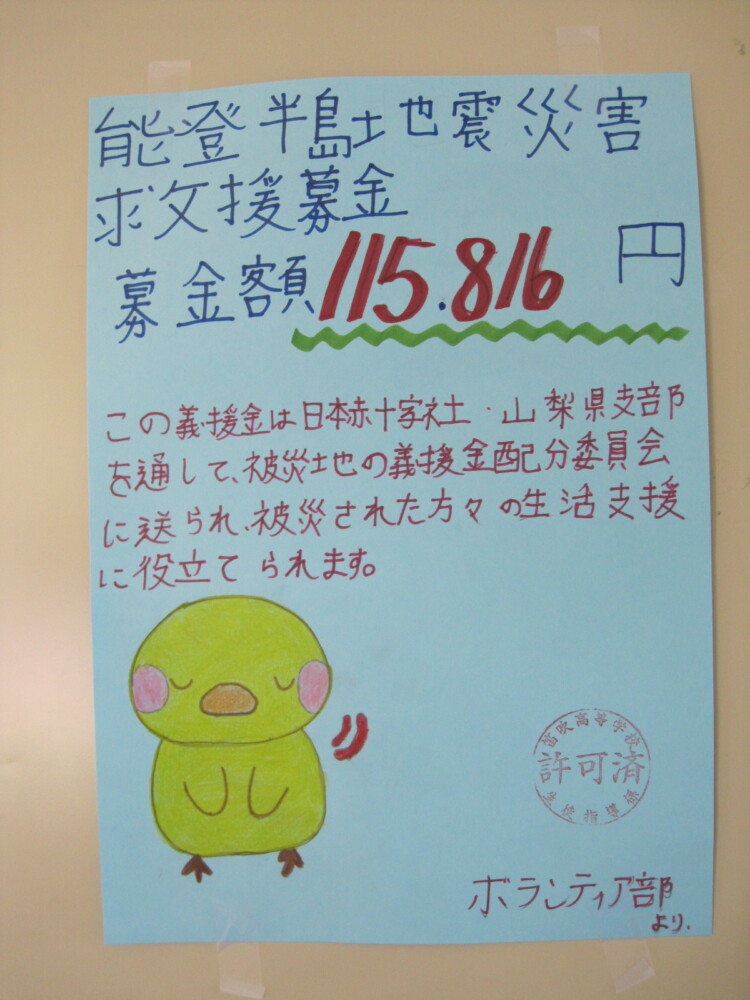 能登半島地震災害
求文援募金
募金額115.816円
この義援金は日本赤十字社・山梨県支部
を通して、被災地の義援金配分委員会
に送られ、被災された方々の生活支援
に役立てられます。
笛吹高等学校
許可済
生徒指導係
ボランティア部
より.